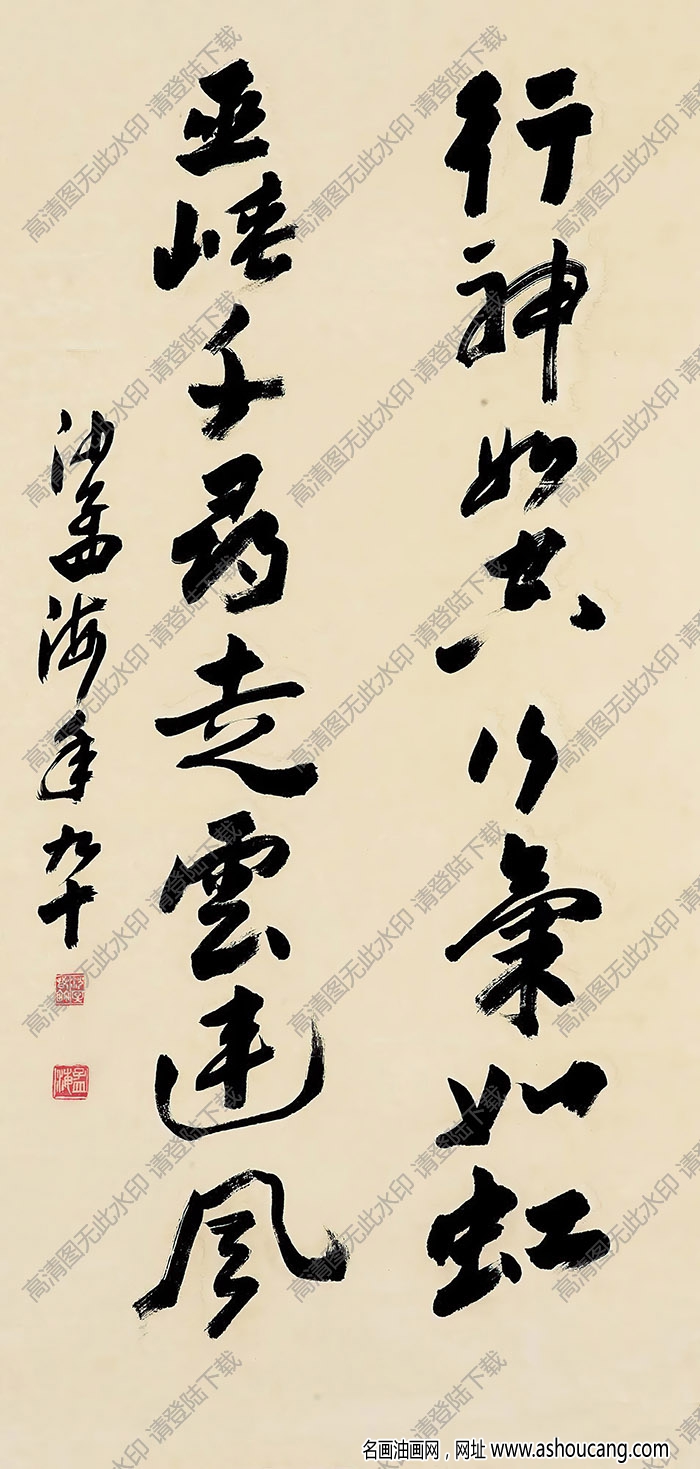 行神如空行氣如虹
巫峽千尋走雲連風
沙孟海年九十
孟海
高清图无此水印 请登陆下载
名画油画网，网址 www.ashoucang.com